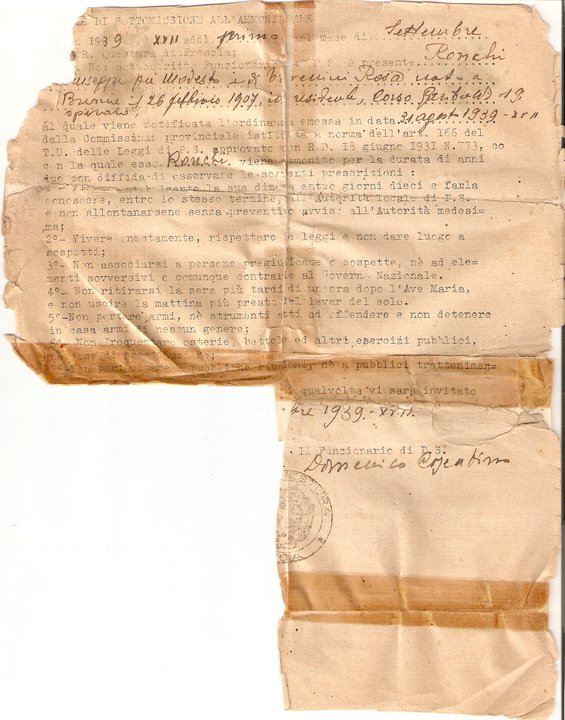 LE DI SOTTOMISSIONE ALL'AMMONIZIONE
1939 XVII addì primo del mese di Settembre
R. Questura di Brescia;
Noi sottoscritti Funzionari di P.S. è presente Ronchi
Giuseppe fu Modesto e di Rosa nato a
il 26 febbraio 1907, ivi residente, Corso Garibaldi 19
al quale viene notificata l'ordinanza emessa in data 31 agost 1939-XVII
dalla Commissione provinciale istituita a norma dell'art. 166 del
T.U. delle Leggi di P.S. approvato con R.D. 18 giugno 1931 N.773, co
con la quale esso Ronchi viene ammonito per la durata di anni
due con diffida di osservare le seguenti prescrizioni :
la sua dimora entro giorni dieci e farla
conoscere, entro lo stesso termine, all'Autorità locale di P.S.
e non allontanarsene senza preventivo avviso all'Autorità medesi=
ma;
2°- Vivere onestamente, rispettare le leggi e non dare luogo a
sospetti;
3°- Non associarsi a persone pregiudicate o sospette, nè ad ele=
menti sovversivi o comunque contrarie al Governo Nazionale.
4°- Non ritirarsi la sera più tardi di un'ora dopo l'Ave Maria,
e non uscire la mattina più presto del levar del sole.
5°-Non portare armi, nè strumenti atti ad offendere e non detenere
in casa armi di nessun genere;
6°- Non frequentare osterie, bettole ed altri esercizi pubblici,
case di prostituzione;
Non partecipare a pubbliche riunioni, nè a pubblici trattenimen=
qualvolta vi sarà invitato
bre 1939-XVII.
Il Funzionario di P.S.
Domenico Cosentino